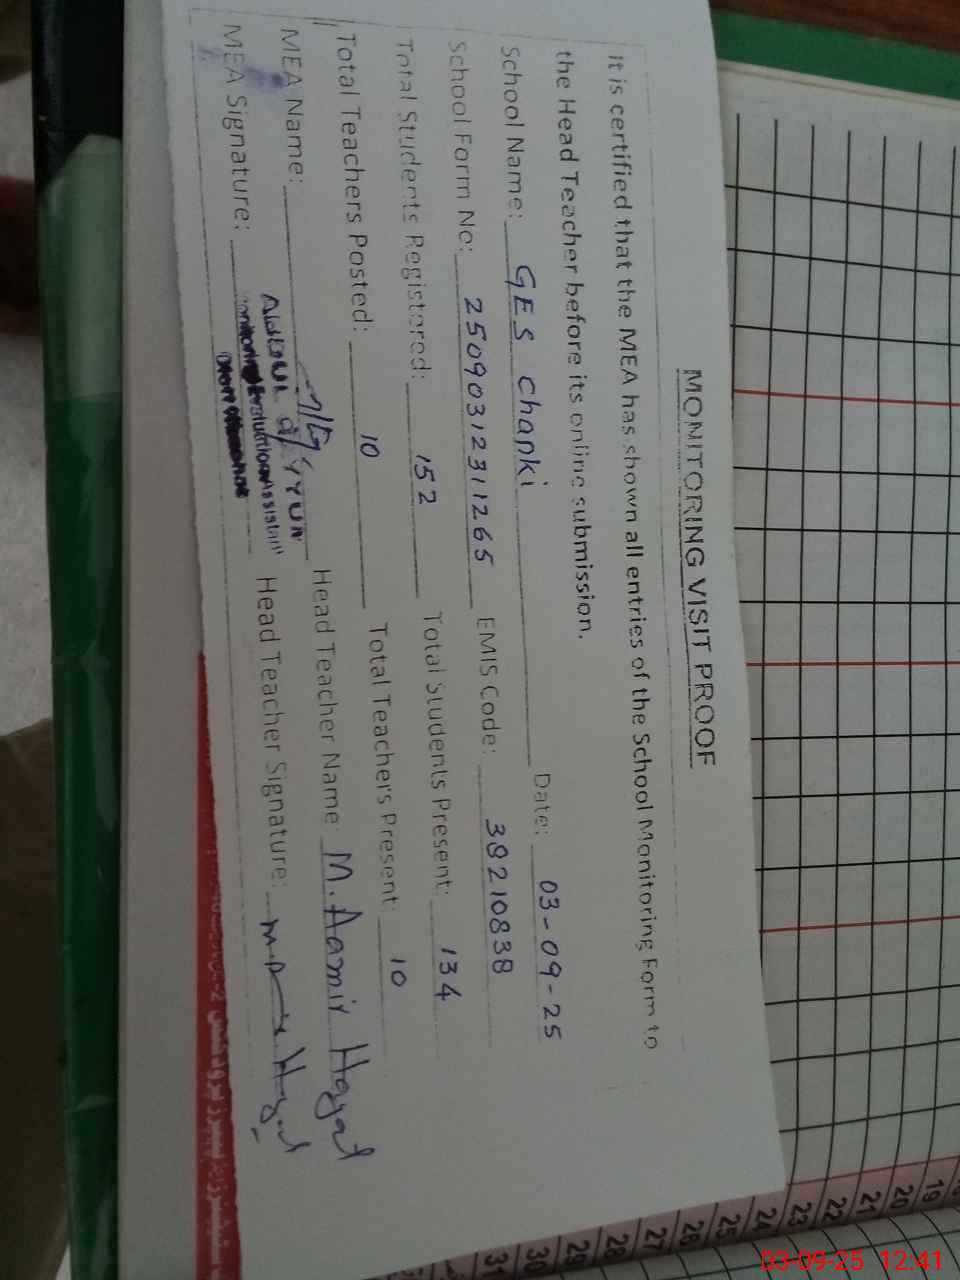 MONITORING VISIT PROOF
It is certified that the MEA has shown all entries of the School Monitoring Form to
the Head Teacher before its online submission.
School Name: GES Chanki Date: 03-09-25
School Form No: 25090312311265 EMIS Code: 38210838
Total Students Registered: 152 Total Students Present: 134
Total Teachers Posted: 10 Total Teachers Present: 10
MEA Name: Head Teacher Name: M. Aamir Hayat
MEA Signature: Head Teacher Signature:
19
20
21
22
23
24
25
26
27
28
29
30
31
03-09-25 12:41